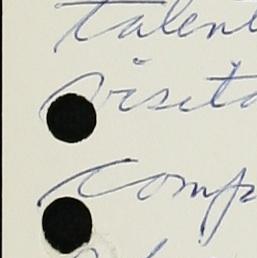 talent
visito
comp